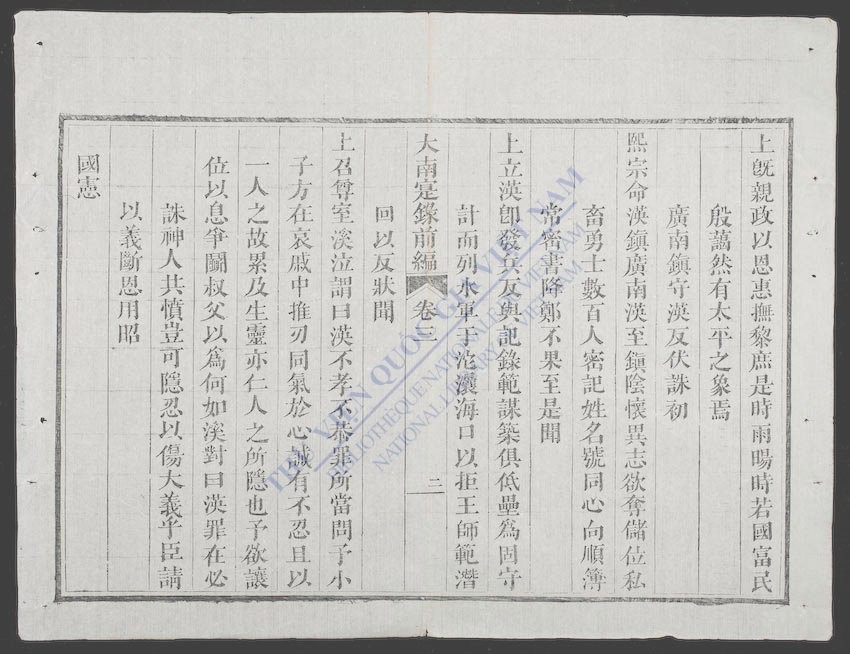 上旣親政以恩惠撫黎庶是時雨暘時若國富民
殷藹然有太平之象焉
廣南鎮守渶反伏誅初
熙宗命渶鎮廣南渶至鎮陰懷異志欲奪儲位私
畜勇士數百人密記姓名號同心向順簿
常密書降鄭不果至是聞
上立渶卽發兵反與記錄範謀築俱低壘爲固守
計而列水軍于沱灢海口以拒王師範潛
大南寔錄前編 卷三 二
回以反狀聞
上召尊室溪泣謂曰渶不孝不恭罪所當問予小
子方在哀戚中推刃同氣於心誠有不忍且以
一人之故累及生靈亦仁人之所隱也予欲讓
位以息爭鬭叔父以爲何如溪對曰渶罪在必
誅神人共憤豈可隱忍以傷大義乎臣請
以義斷恩用昭
國憲
THƯ VIỆN QUỐC GIA VIỆT NAM
BIBLIOTHÈQUE NATIONALE DU VIETNAM
NATIONAL LIBRARY OF VIETNAM